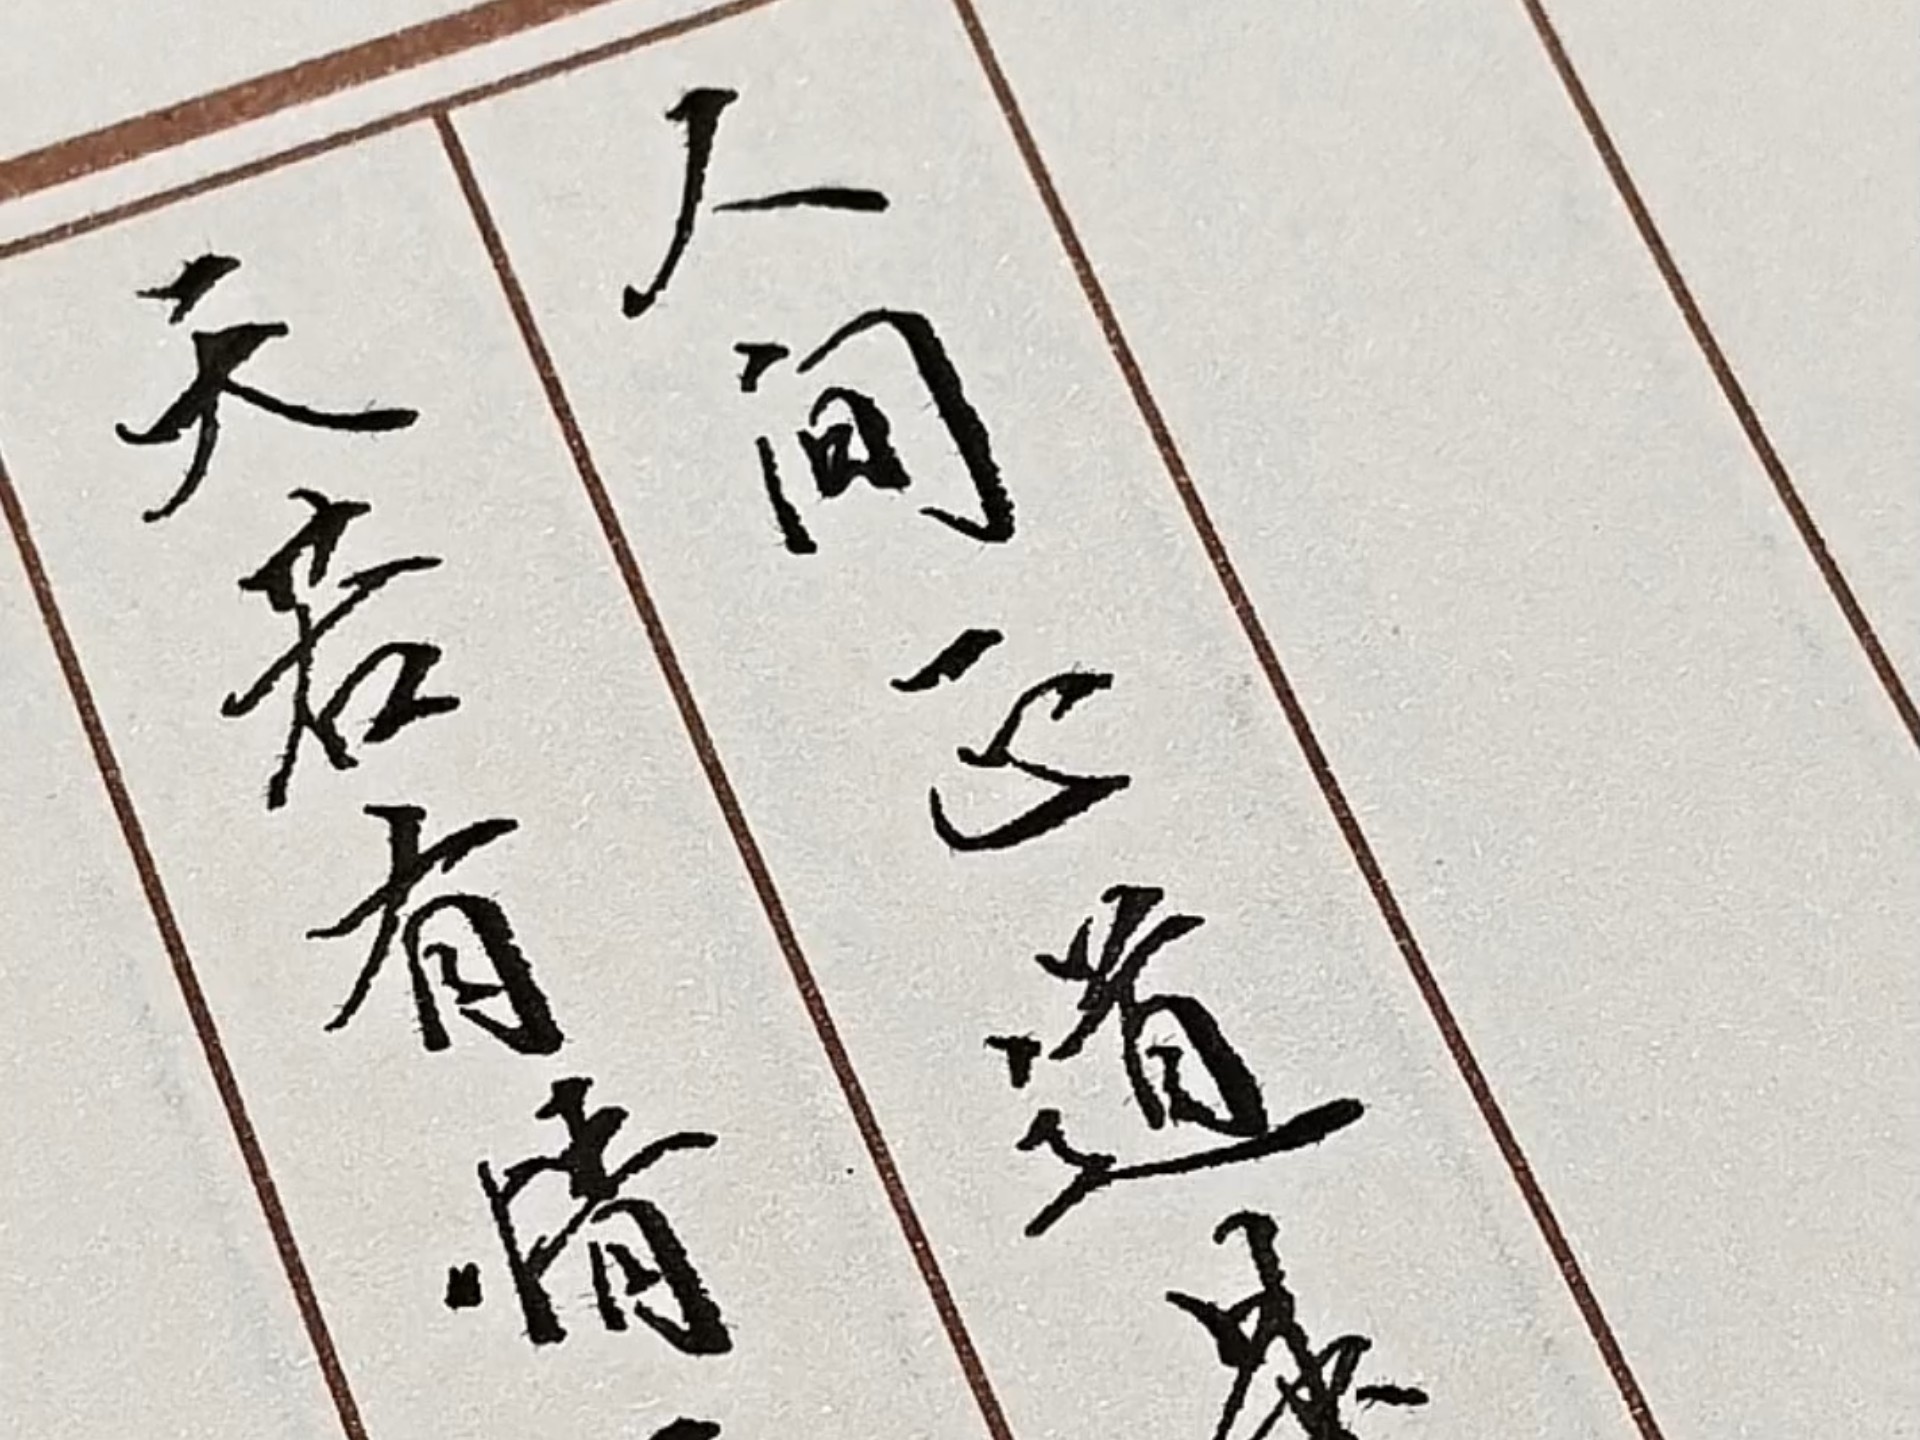 天若有情
人间正道